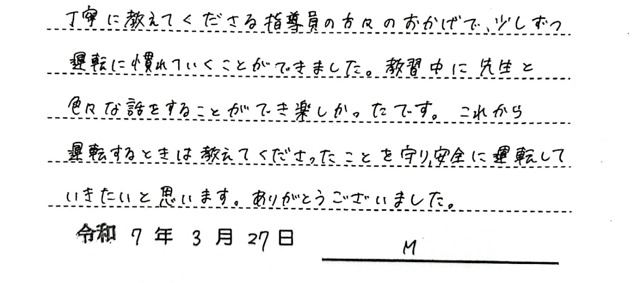 丁寧に教えてくださる指導員の方々のおかげで、少しずつ
運転に慣れていくことができました。教習中に先生と
色々な話をすることができ楽しかったです。これから
運転するときは教えてくださったことを守り、安全に運転して
いきたいと思います。ありがとうございました。
令和 7 年 3 月 27 日
M